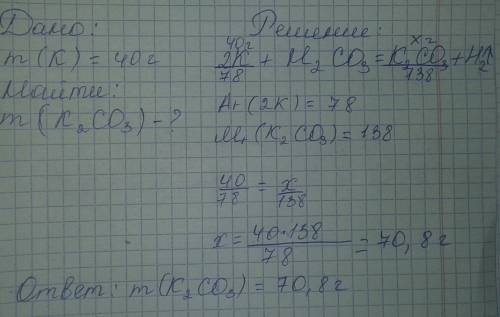 Дано:
m(K) = 40г
Найти:
m(K₂CO₃) - ?
Решение:
40г x г
2K + H₂CO₃ = K₂CO₃ + H₂↑
78 138
Ar(2K) = 78
Mr(K₂CO₃) = 138
40/78 = x/138
x = 40·138/78 = 70,8г
Ответ: m(K₂CO₃) = 70,8г